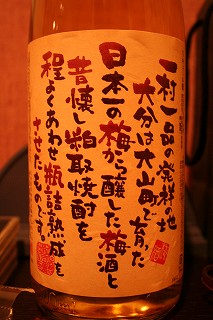 一村一品の発祥の地
大分は大山町で育った
日本一の梅から醸した梅酒と
昔懐し粕取焼酎を
程よくあわせ瓶詰熟成を
させたものです。